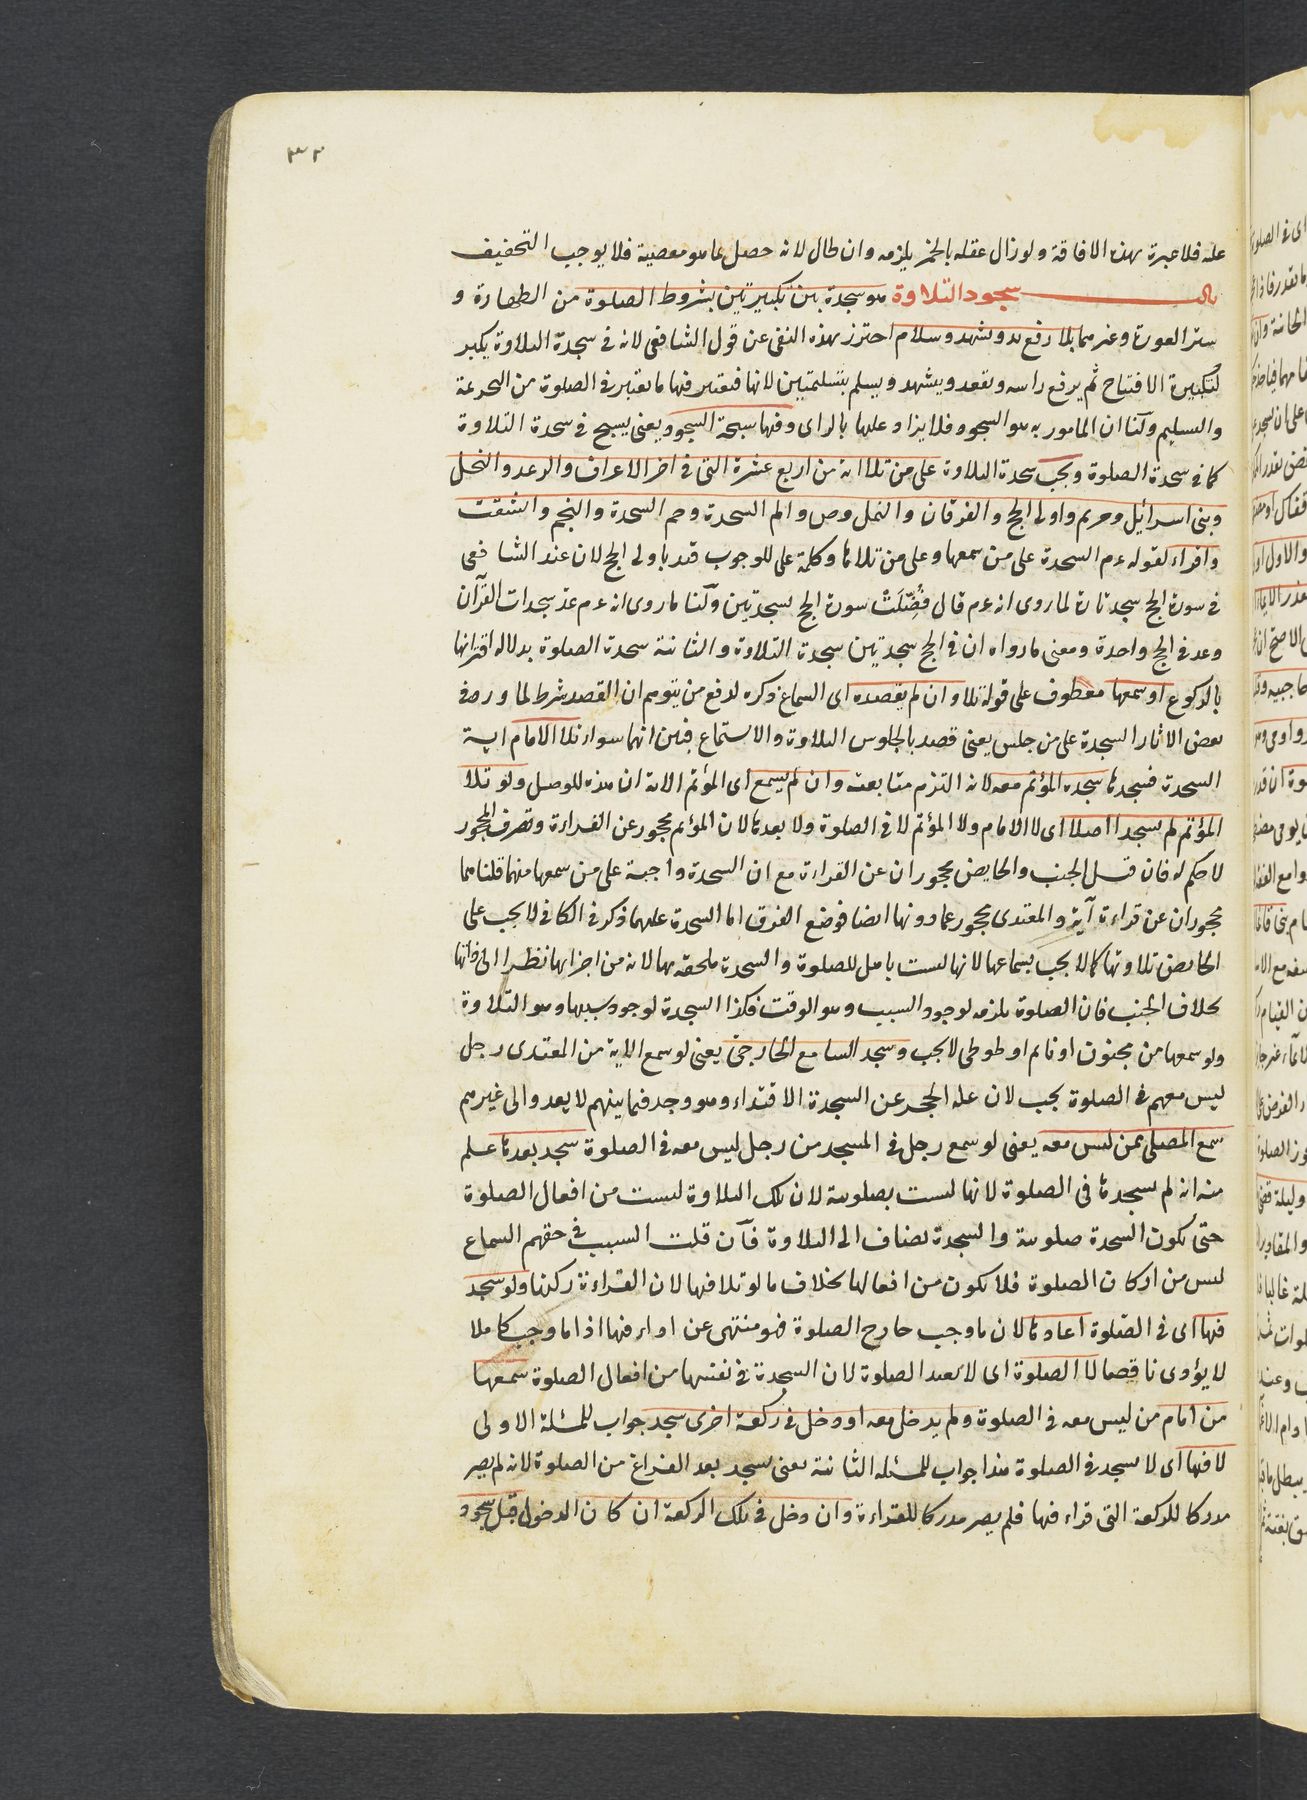 ٣٢
عليه فلا عبرة بهذه الافاقة ولو زال عقله بالخمر يلزمه وان طال لانه حصل بما هو معصية فلا يوجب التخفيف
باب سجود التلاوة هو سجدة بين تكبيرتين بشروط الصلوة من الطهارة و
ستر العورة وغيرهما بلا رفع يد وتشهد وسلام احترز بهذه النفى عن قول الشافعى لانه فى سجدة التلاوة يكبر
لتكبيرة الافتتاح ثم يرفع راسه ويقعد ويتشهد ويسلم بتسليمتين لانها فيعتبر فيها ما يعتبر فى الصلوة من التحريمة
والتسليم ولنا ان المامور به هو السجود فلا يزاد عليها بالراى وفيها سبحة السجود يعنى يسبح فى سجدة التلاوة
كما فى سجدة الصلوة وتجب سجدة التلاوة على من تلا اية من اربع عشرة التى فى اخر الاعراف والرعد والنحل
وبنى اسرائيل ومريم واولى الحج والفرقان والنمل وص والم السجدة وحم السجدة والنجم وانشقت
واقراء لقوله عم السجدة على من سمعها وعلى من تلاها وكلمة على للوجوب قيد باولى الحج لان عند الشافعى
فى سورة الحج سجدتان لما روى انه عم قال فُضِّلَتْ سورة الحج بسجدتين ولنا ما روى انه عم عد سجدات القرآن
وعد فى الحج واحدة ومعنى ما رواه ان فى الحج سجدتين سجدة التلاوة والثانية سجدة الصلوة بدلالة اقترانها
بالركوع او سمعها معطوف على قوله تلا وان لم يقصده اى السماع ذكره لدفع من يتوهم ان القصد شرط لما ورد فى
بعض الاثار السجدة على من جلس يعنى قصد بالجلوس التلاوة والاستماع فبين انهما سواء تلا الامام اية
السجدة فسجدها سجده المؤتم معه لانه التزم متابعته وان لم يسمع اى المؤتم الاية ان هذه للوصل ولو تلا
المؤتم لم يسجد اصلا اى لا الامام ولا المؤتم لا فى الصلوة ولا بعدها لان المؤتم محجور عن القراءة وتصرف المحجور
لا حكم له فان قيل الجنب والحايض محجوران عن القراءة مع ان السجدة واجبة على من سمعها منهما قلنا هما
محجوران عن قراءة آية والمقتدى محجور عما دونها ايضا فوضع الفرق اما السجدة عليهما ذكر فى الكافى لا يجب على
الحايض بتلاوتها كما لا يجب بسماعها لانها ليست باهل للصلوة والسجدة ملحقة بها لانه من اجزائها نظرا الى ذاتها
بخلاف الجنب فان الصلوة يلزمه لوجود السبب وهو الوقت فكذا السجدة لوجود سببها وهو التلاوة
ولو سمعها من مجنون او نايم او طوطى لا يجب وسجد السامع الخارجى يعنى لو سمع الاية من المقتدى رجل
ليس معهم فى الصلوة يجب لان علة الحجر عن السجدة الاقتداء وهو وجد فيما بينهم لا يعدو الى غيرهم
سمع المصلى ممن ليس معه يعنى لو سمع رجل فى المسجد من رجل ليس معه فى الصلوة سجد بعدها علم
منه انه لم يسجدها فى الصلوة لانها ليست بصلوية لان تلك التلاوة ليست من افعال الصلوة
حتى تكون السجدة صلوية والسجدة تضاف الى التلاوة فآن قلت السبب فى حقهم السماع
ليس من اركان الصلوة فلا تكون من افعالها بخلاف ما لو تلا فيها لان القراءة ركنها ولو سجد
فيها اى فى الصلوة اعادها لان ما وجب خارج الصلوة فهو منتهى عن اداء فيها اذا ما وجب كاملا
لا يؤدى ناقصا لا الصلوة اى لا يعيد الصلوة لان السجدة فى نفسها من افعال الصلوة سمعها
من امام من ليس معه فى الصلوة ولم يدخل معه او دخل فى ركعة اخرى سجد جواب للمسئلة الاولى
لا فيها اى لا يسجد فى الصلوة هذا جواب للمسئلة الثانية يعنى يسجد بعد الفراغ من الصلوة لانه لم يصر
مدركا للركعة التى قراء فيها فلم يصر مدركا للقراءة وان دخل فى تلك الركعة ان كان الدخول قبل سجود